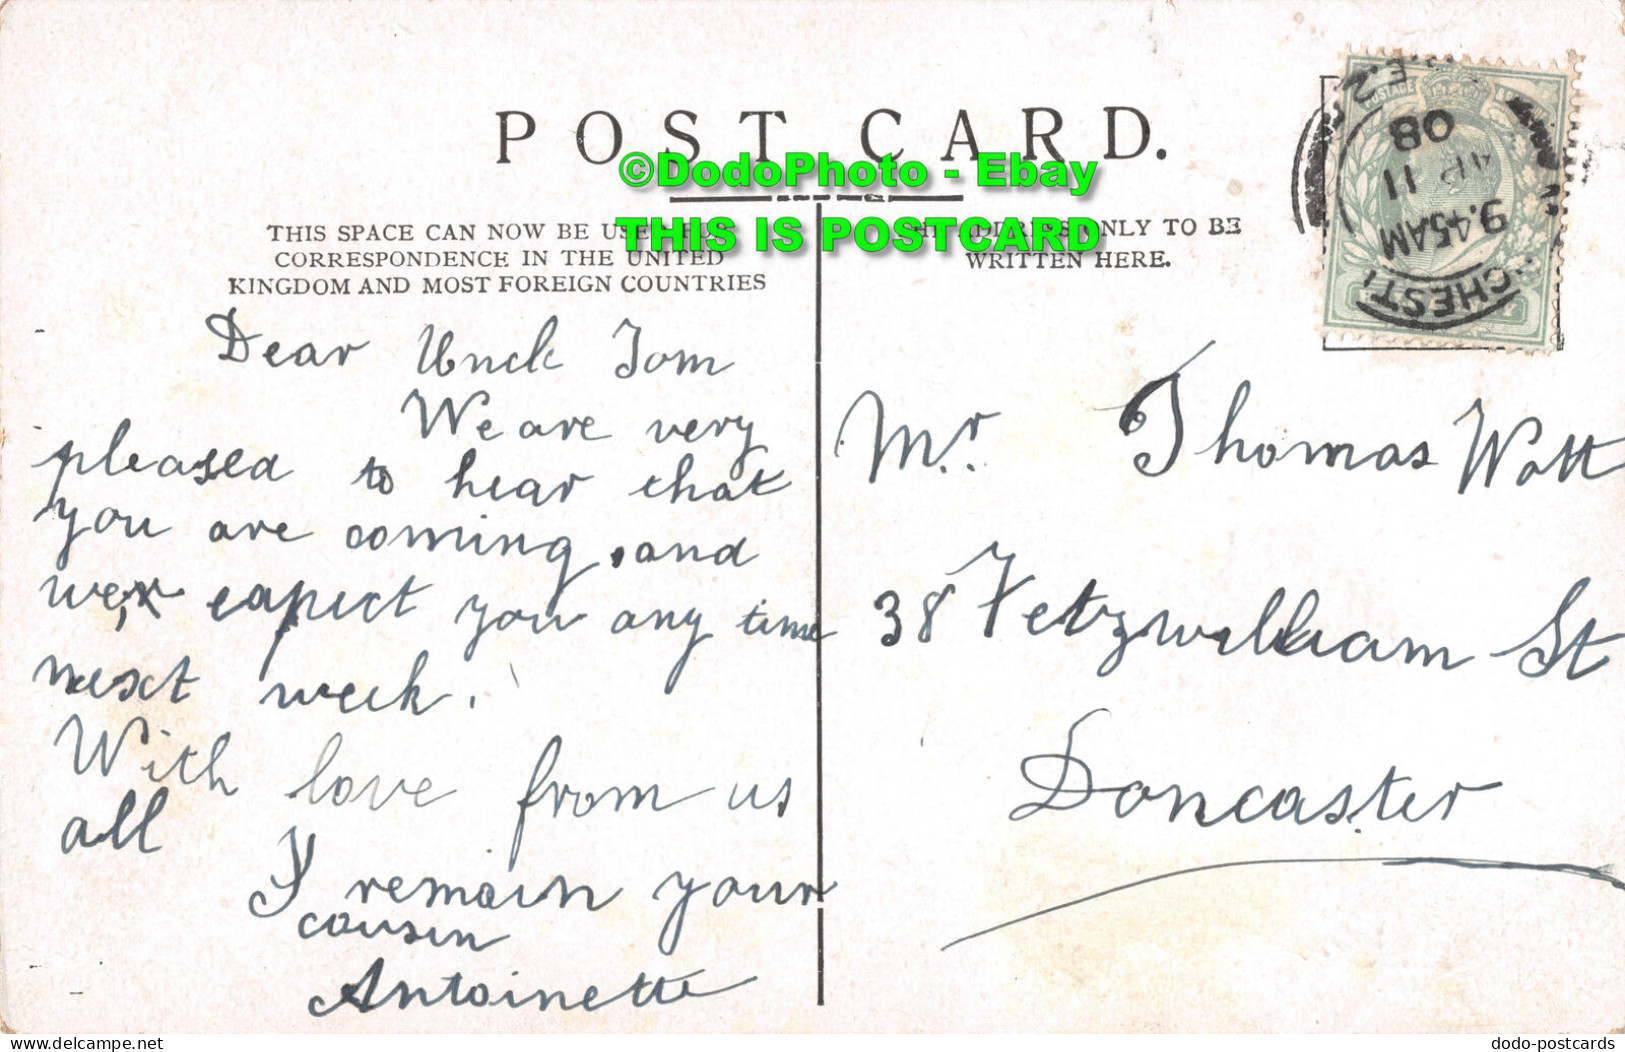 POST CARD.
©DodoPhoto - Ebay
THIS IS POSTCARD
THIS SPACE CAN NOW BE USED FOR
CORRESPONDENCE IN THE UNITED
KINGDOM AND MOST FOREIGN COUNTRIES
ONLY TO BE
WRITTEN HERE.
POSTAGE
08
AP 11
9.45AM
CHEST
Dear Uncle Tom
We are very
pleased to hear that
you are coming, and
we expect you any time
next week.
With love from us
all
I remain your
cousin
Antoinette
Mr. Thomas Watt
38 Fetzwilliam St
Doncaster
www.delcampe.net
dodo-postcards